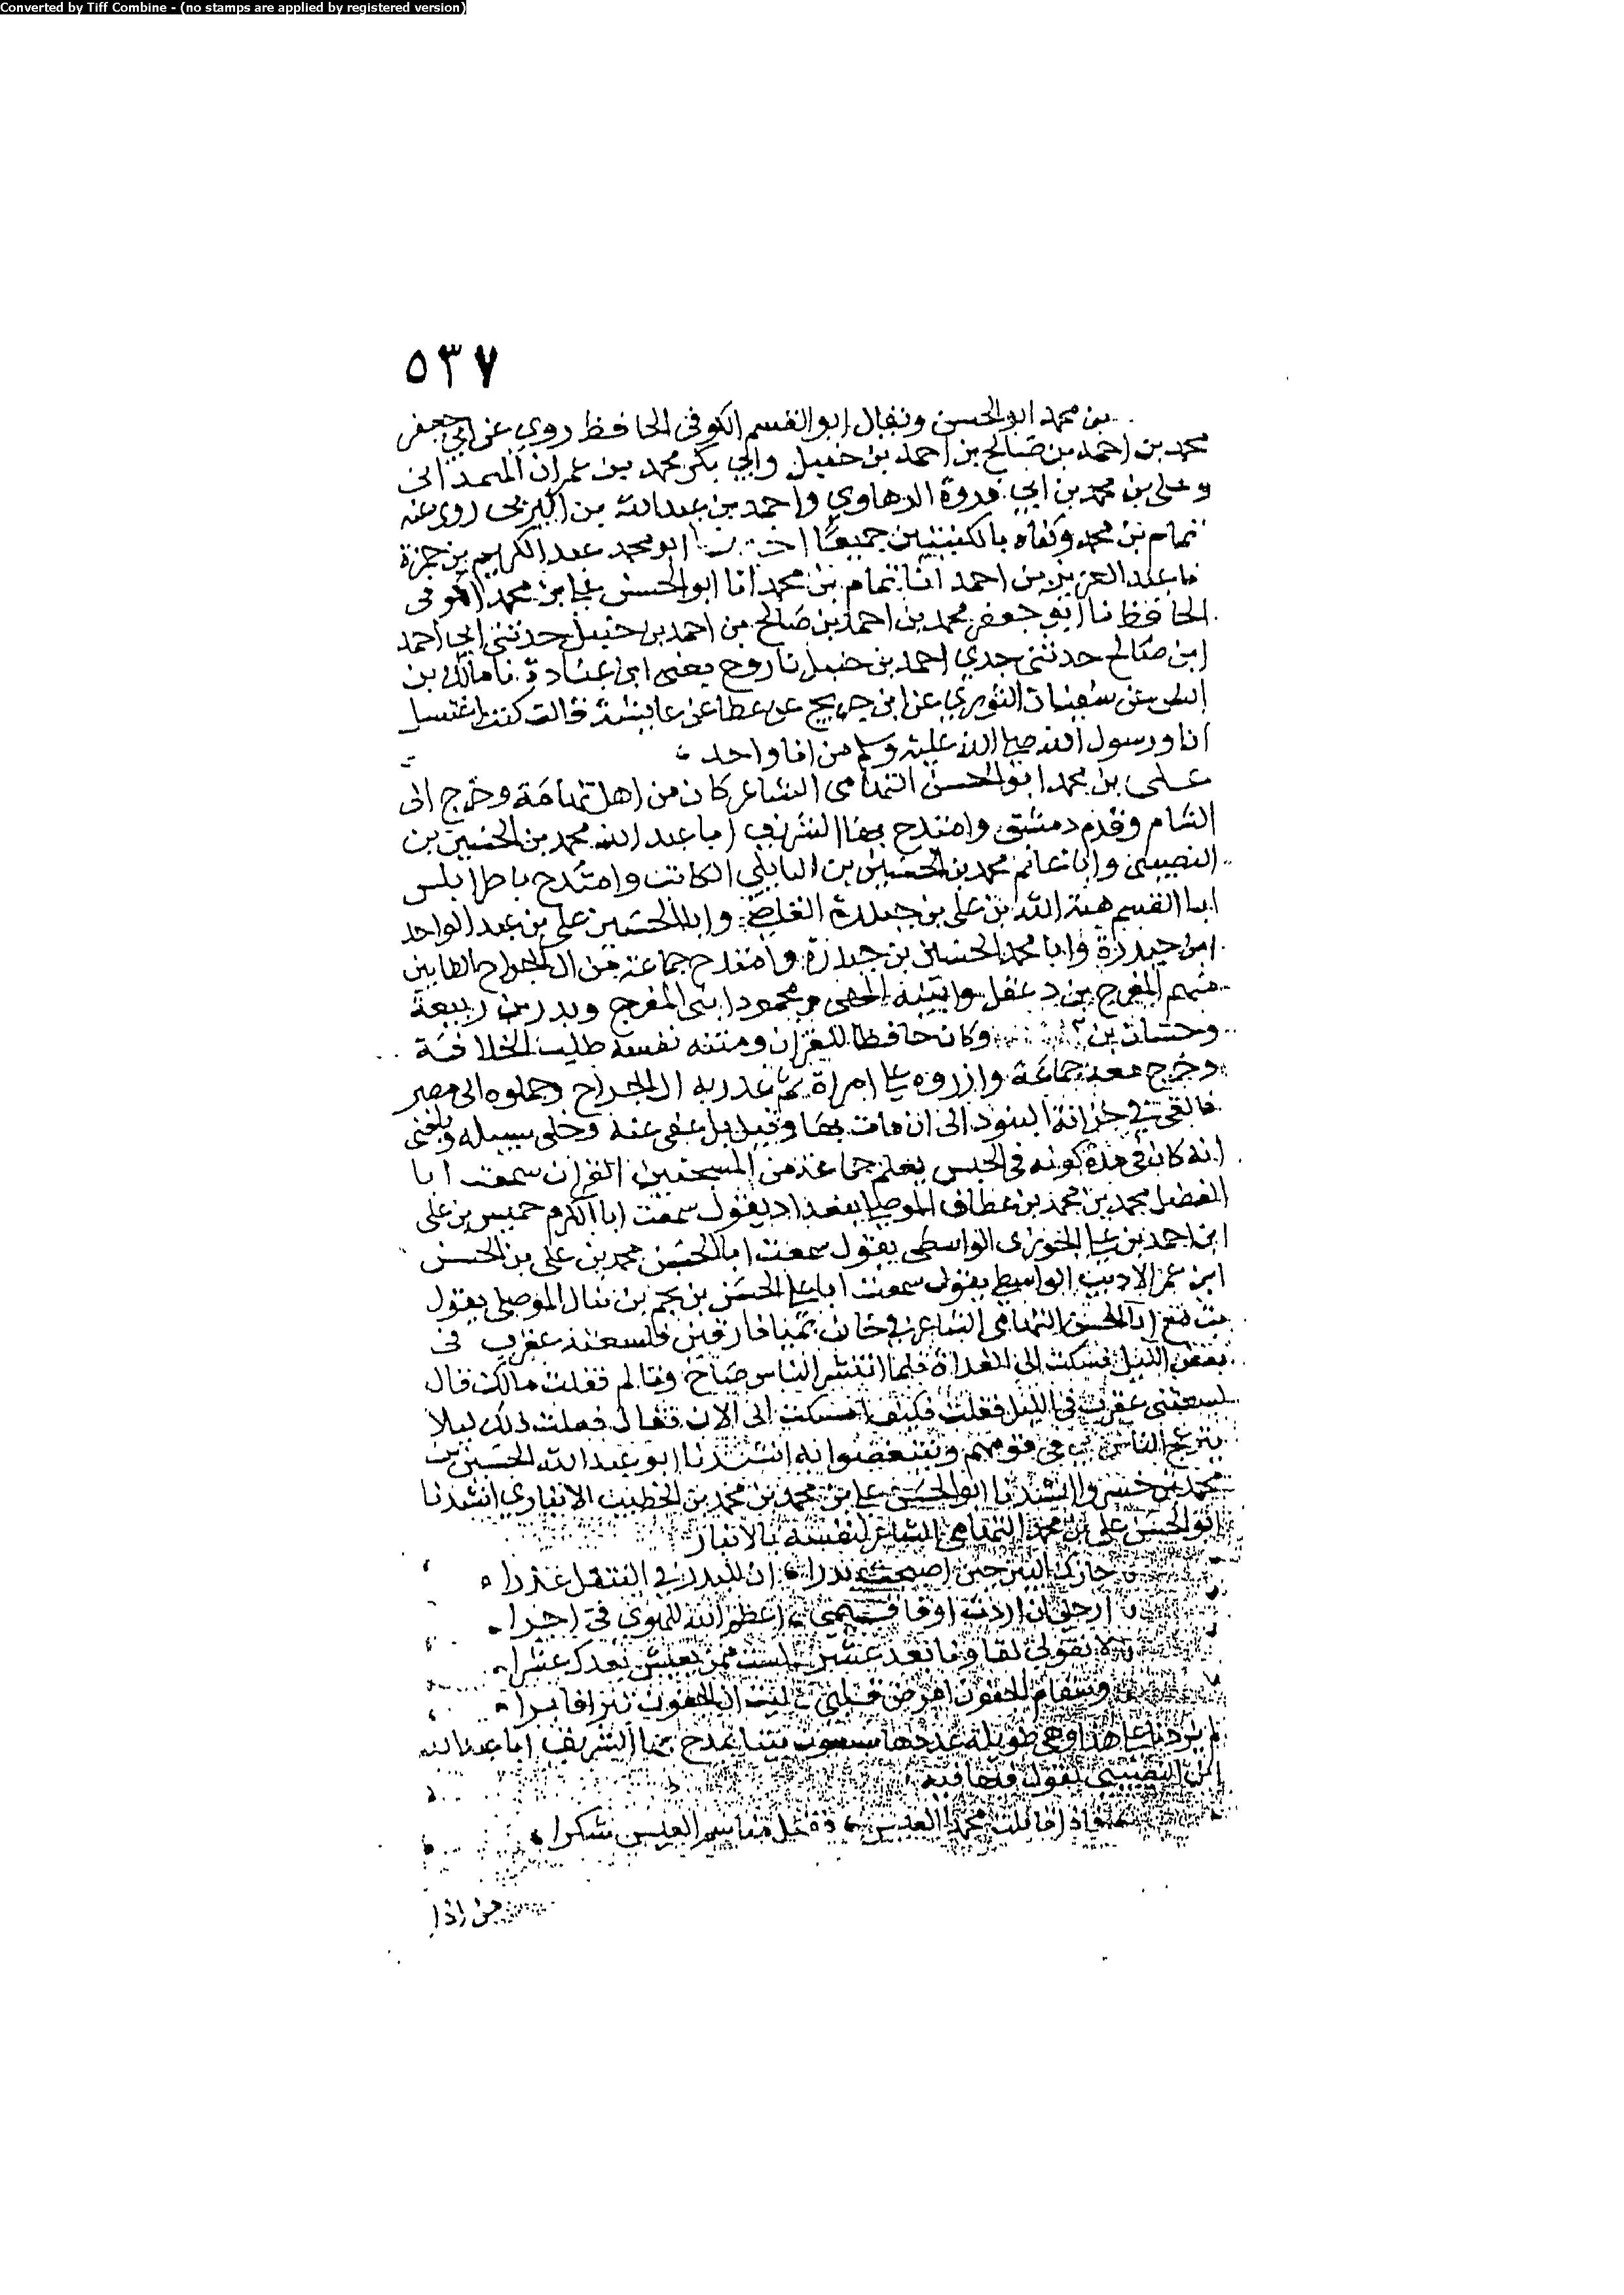 Converted by Tiff Combine - (no stamps are applied by registered version)
٥٣٧
بن محمد ابو الحسن ويقال ابو القسم الكوفى الحافظ روي عن ابي جعفر
محمد بن احمد بن صالح بن احمد بن حنبل وابي بكر محمد بن عمران الهمدانى
وعلى بن محمد بن ابي فروة الرهاوي واحمد بن عبد الله بن روى عنه
تمام بن محمد وكناه بالكنيتين جميعا ابو محمد عبد الكريم بن حمزة
نا عبد العزيز بن احمد انا تمام بن محمد انا ابو الحسن على بن محمد الكوفى
الحافظ نا ابو جعفر محمد بن احمد بن صالح بن احمد بن حنبل حدثنى ابي احمد
ابن صالح حدثنى جدي احمد بن حنبل نا روح يعنى ابن عبادة نا مالك بن
انس عن سفيان الثوري عن ابن جريج عن عطا عن عايشة قالت كنت اغتسل
انا ورسول الله صلى الله عليه وسلم من انا واحد
على بن محمد ابو الحسن التهامى الشاعر كان من اهل تهامة وخرج الى
الشام وقدم دمشق وامتدح بها الشريف ابا عبد الله محمد بن الحسين بن
النصيبى وابا غانم محمد بن الحسين بن الكاتب وامتدح باطرابلس
ابا القسم هبة الله بن على بن حيدرة وابا الحسين على بن عبد الواحد
ابن حيدرة وابا محمد الحسين بن حيدرة وامتدح جماعة من ال الجراح الطايين
منهم المفرج بن دغفل وابنيه ومحمود ابنى المفرج وبدر بن ربيعة
وحسان بن وكان حافظا للقران ومنته نفسه طلب الخلافة
وخرج معه جماعة وازروه على امراة ثم غدر به ال الجراح وحملوه الى مصر
فالقي في خزانة البنود الى ان مات بها وقيل بل عفى عنه وخلى سبيله وبلغنى
انه كان فى مدة كونه فى الحبس يعلم جماعة من المسجنين القران سمعت ابا
الفضل محمد بن محمد بن عطاف الموصلى ببغداد يقول سمعت ابا الكرم خميس بن على
ابن احمد بن على الحوزى الواسطى يقول سمعت ابا الحسن محمد بن على بن الحسن
ابن عمر الاديب الواسطى يقول سمعت ابا على الحسن بن الموصلى يقول
بت مع ابي الحسن التهامى الشاعر في خان بميافارقين فلسعته عقرب فى
بعض الليل فسكت الى الغداة فلما انتشر الناس صاح وتالم فقلت مالك قال
لسعتنى عقرب فى الليل فقلت فكيف امسكت الى الان فقال فعلت ذلك ليلا
ينزعج الناس فى نومهم انشدنا ابو عبد الله الحسين بن
محمد بن خسرو انشدنا ابو الحسن على بن محمد بن محمد بن الخطيب الانباري انشدنا
ابو الحسن على بن محمد التهامى الشاعر لنفسه بالانبار
حازك البين حين اصبحت بدرا ان للبدر في التنقل عذرا
ارحلى ان اردت او فاقيمى اعظم الله للهوى فى اجرا
لا تقولى لقاونا بعد عشر لست ممن يعيش بعدك عشرا
وسقام الجفون امرض قلبى ليت ان الجفون تبرا فابرا
لم يزدنا على هذا وهى طويلة عددها بيتا يمدح بها الشريف ابا عبد الله
ابن النصيبى يقول فيها فيه
شكرا
من اذا